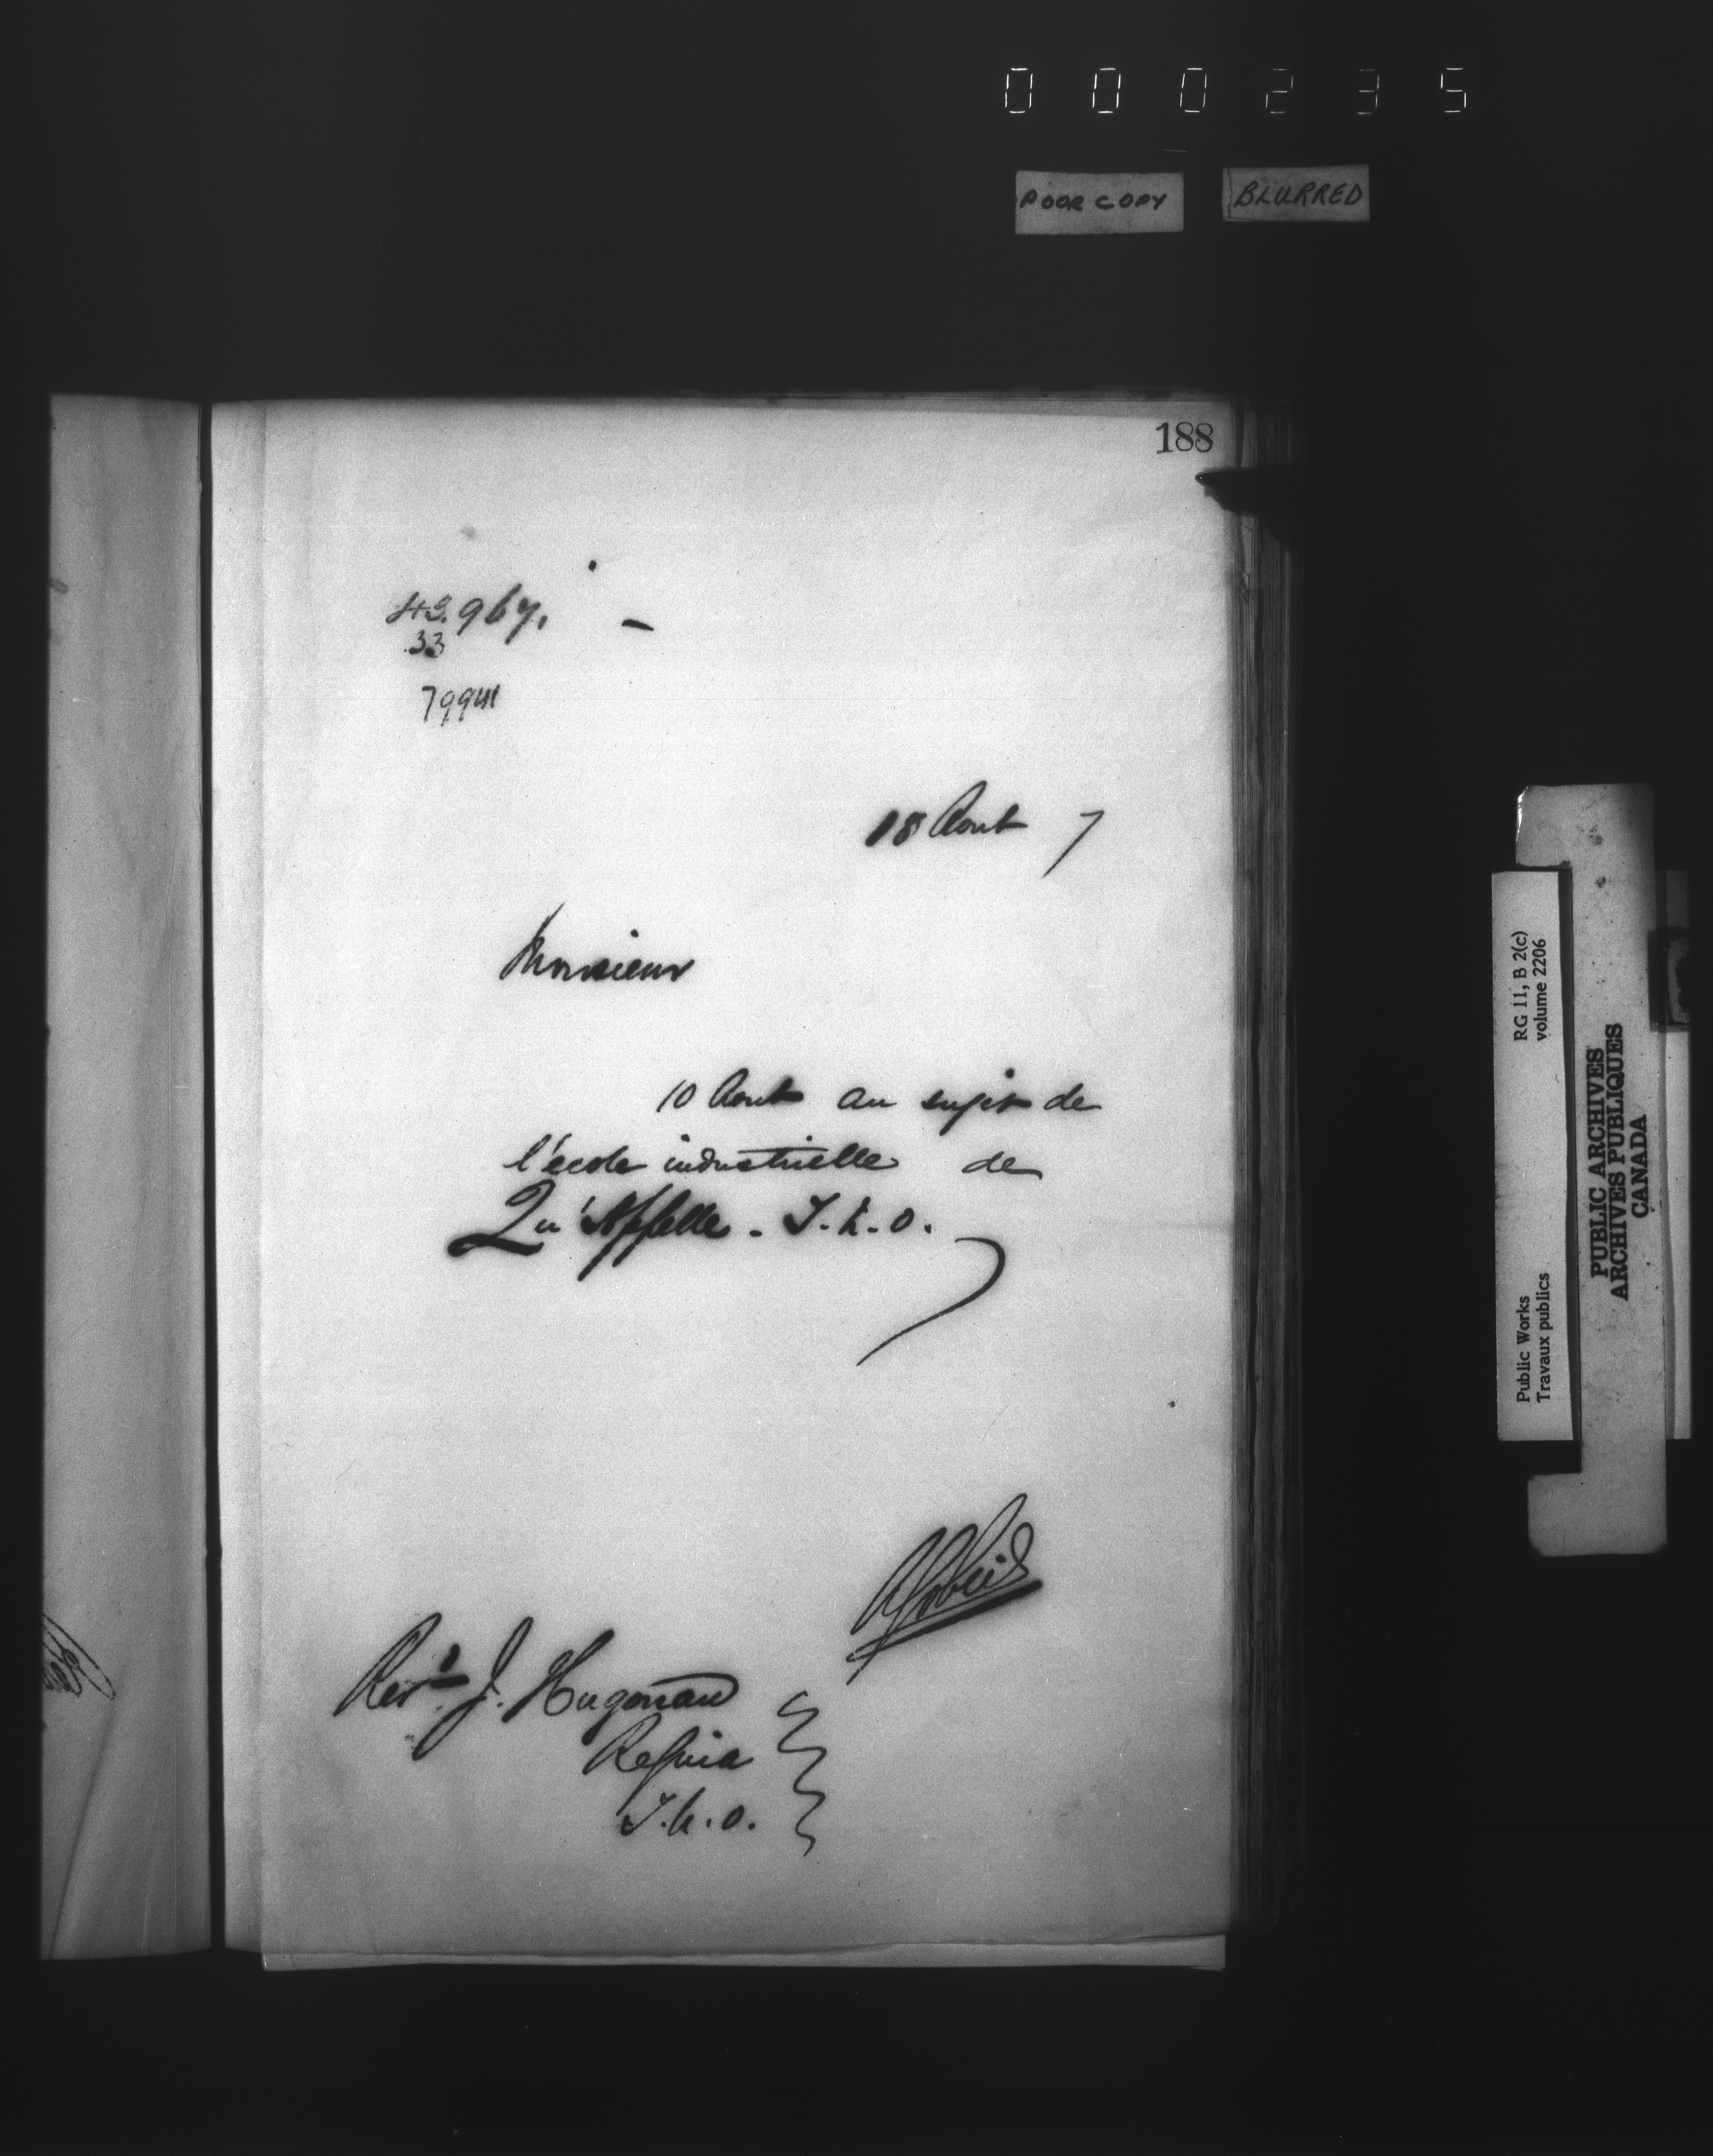 000235
POOR COPY BLURRED
188
43.967.
33
79941
18 Aout 7
Monsieur
10 Aout au sujet de
l'école industrielle de
Qu'Appelle - T.N.O.
AGobeil
Revd. J. Hugonau
Regina
T.N.O.
Public Works RG 11, B 2(c)
Travaux publics volume 2206
PUBLIC ARCHIVES
ARCHIVES PUBLIQUES
CANADA